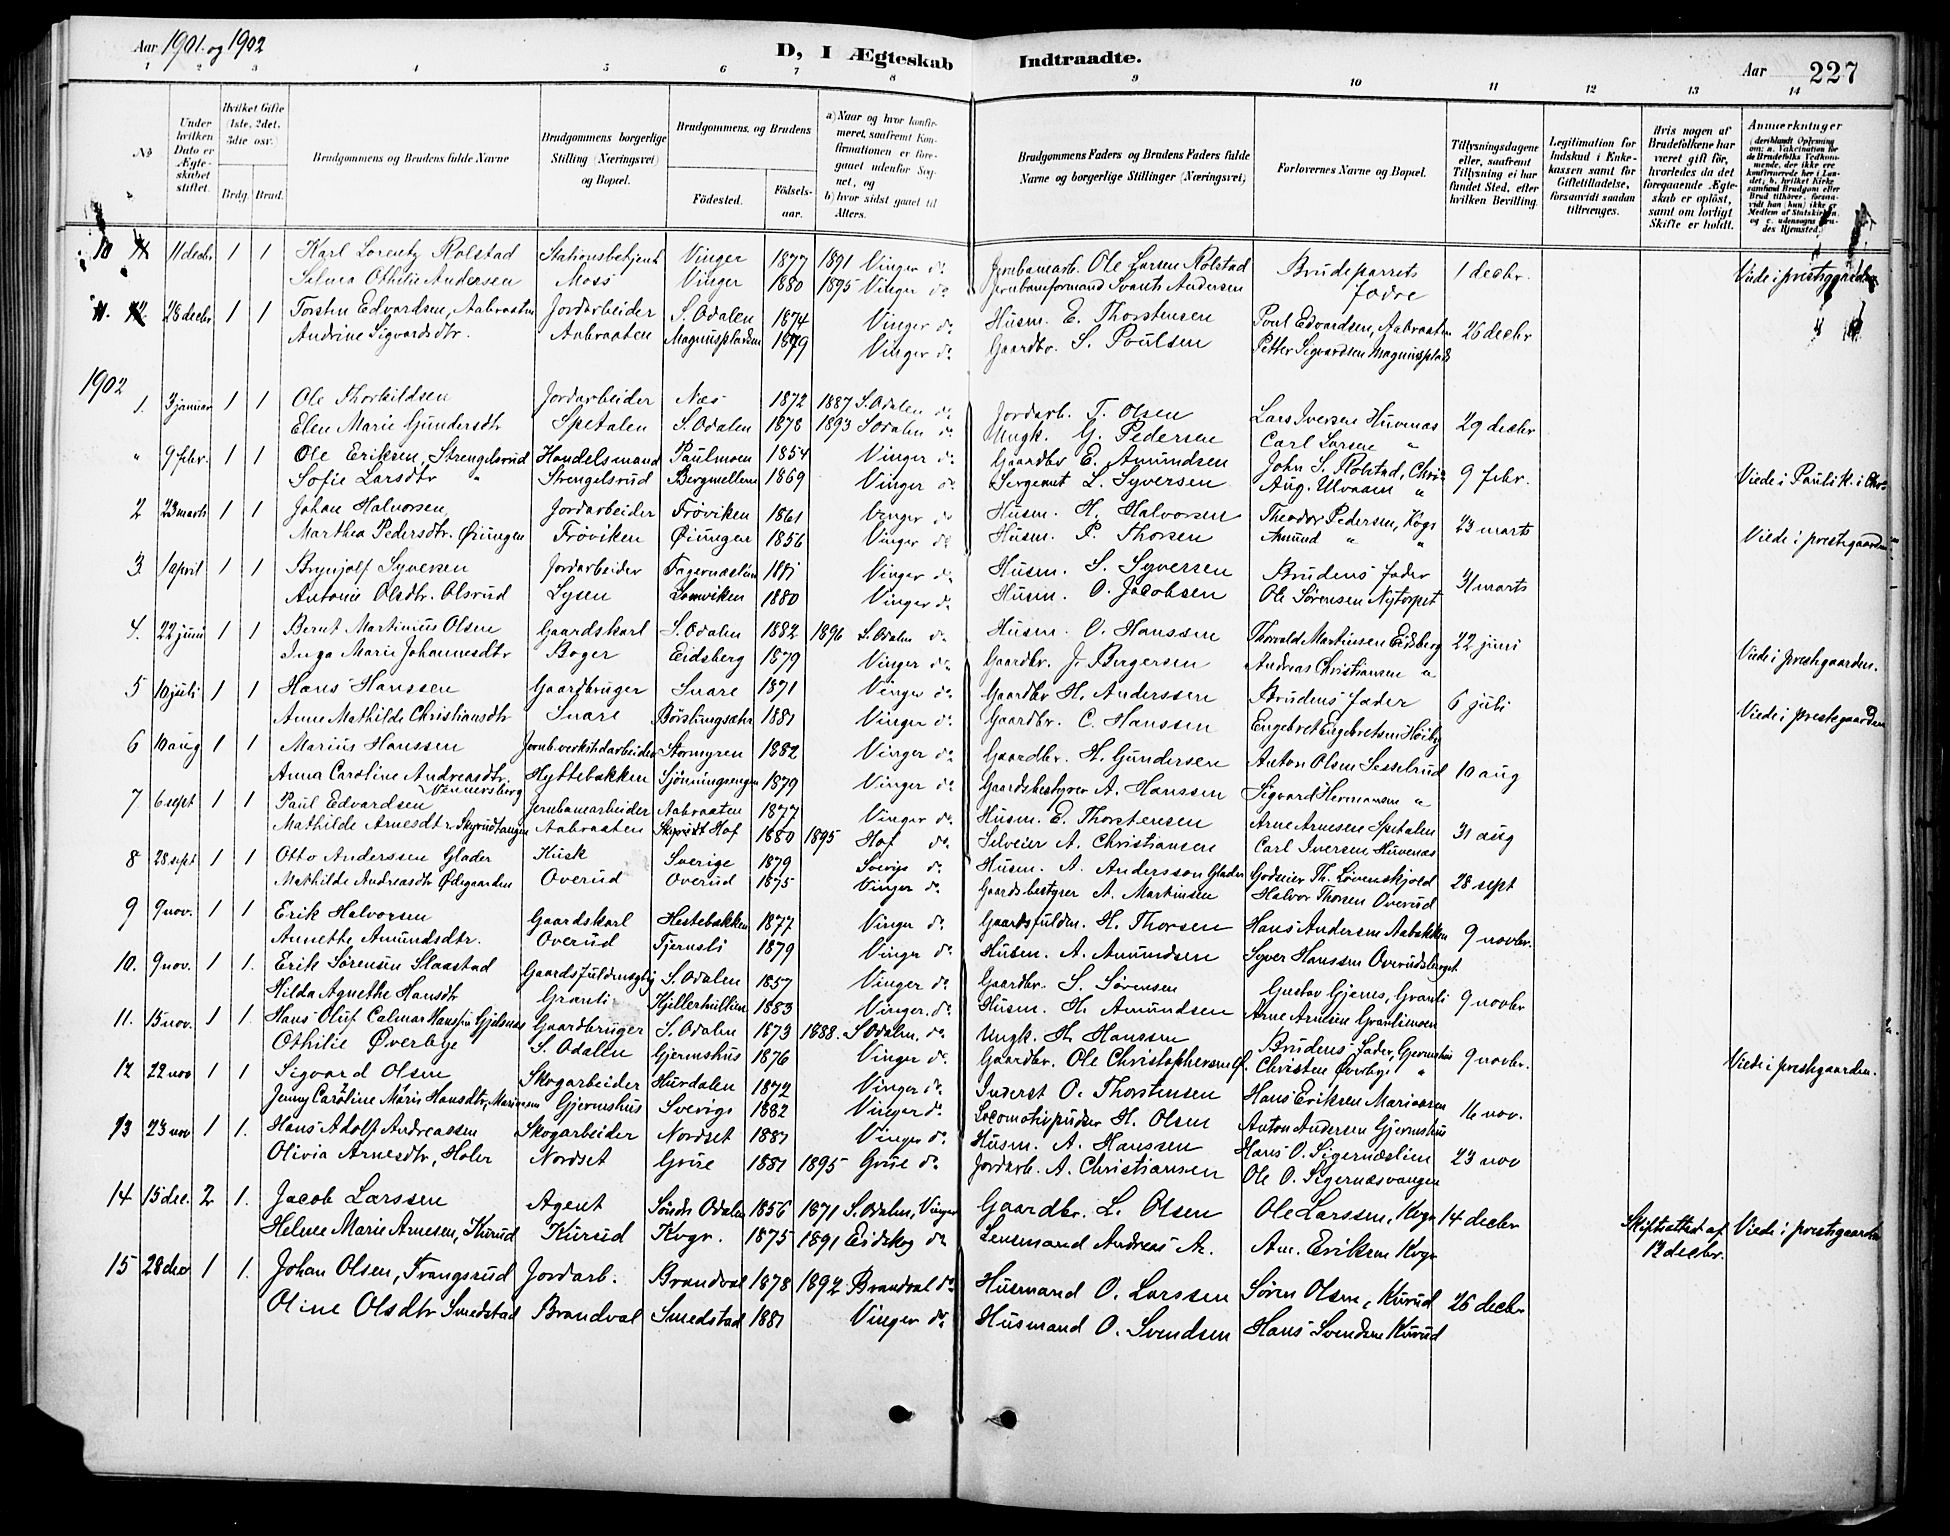 Aar 1901 og 1902
D, I Ægteskab Indtraadte.
Aar 227
1 2 3 4 5 6 7 8 9 10 11 12 13 14
No
Under hvilken Dato er Ægteskabet stiftet.
Hvilket Gifte (1ste, 2det, 3die osv.)
Brdg. Brud.
Brudgommens og Brudens fulde Navne
Brudgommens borgerlige Stilling (Næringsvei) og Bopæl.
Brudgommens og Brudens
Fødested.
Fødselsaar.
a) Naar og hvor konfirmeret, saafremt Konfirmationen er foregaaet udenfor Sognet, og
b) hvor sidst gaaet til Alters.
Brudgommens Faders og Brudens Faders fulde Navne og borgerlige Stillinger (Næringsvei)
Forlovernes Navne og Bopæl.
Tillysningsdagene eller, saafremt Tillysning ei har fundet Sted, efter hvilken Bevilling.
Legitimation for Indskud i Enkekassen samt for Giftetilladelse, forsaavidt saadan tiltrænges.
Hvis nogen af Brudefolkene har været gift før, hvorledes da det foregaaende Ægteskab er opløst, samt om lovligt Skifte er holdt.
Anmærkninger
10 11 decbr 1 1 Karl Lorentz Rolstad Stationsbetjent Vinger 1877 1891 Vinger do Jernbanearb. Ole Larsen Rolstad Brudeparrets 1 decbr. Viede i prestegaarden
Selma Othilie Andersen Moss Vinger 1880 1895 Vinger do Jernbaneformand Svants Andersen fædre
11. 28 decbr 1 1 Torsten Edvardsen, Aabraaten Jordarbeider S. Odalen 1874 Vinger do Husm. E. Thorstensen Poul Edvardsen, Aabraaten 26 decbr
Andrine Sigvardsdtr. Aabraaten Magnuspladsen 1879 Vinger do Gaardbr. S. Poulsen Petter Sigvardsen Magnusplads
1902
1. 3 januar 1 1 Ole Thorkildsen Jordarbeider Næs 1872 1887 S. Odalen do Jordarb. T. Olsen Lars Iversen Huvenæs 29 decbr
Elen Marie Gundersdtr Spetalen S. Odalen 1878 1893 S. Odalen do Ungk. G. Pedersen Carl Larsen "
" 9 febr. 1 1 Ole Eriksen, Strengelsrud Handelsmand Paulmoen 1854 Vinger do Gaardbr E. Amundsen John S. Rolstad, Chra 9 febr. Viede i Paulsk. i Chr
Sofie Larsdtr " Strengelsrud Bergmellem 1869 Vinger do Sergeant L. Syversen Aug. Ulvaam "
2 23 marts 1 1 Johan Halvorsen, Jordarbeider Frøviken 1861 Vinger do Husm. H. Halvorsen Theodor Pedersen, Kogs 23 marts Viede i prestegaarden
Marthea Pedersdtr. Øiungen Frøviken Øiungen 1856 Vinger do Husm. P. Thorsen Amund " "
3. 1 april 1 1 Brynjolf Syversen Jordarbeider Fagernæslien 1881 Vinger do Husm. S. Syversen Brudens fader 31 marts
Antonie Olsdtr. Olsrud Lysen Lomviken 1880 Vinger do Husm. O. Jacobsen Ole Sørensen Nytorpet
4. 22 juni 1 1 Bernt Martinius Olsen Gaardskarl S. Odalen 1882 1896 S. Odalen do Husm. O. Hanssen Thorvald Martinsen Eidsberg 22 juni Viede i prestgaarden.
Inga Marie Johannesdtr Boger Eidsberg 1879 Vinger do Gaardbr. J. Bergersen Andreas Christiansen "
5 10 juli 1 1 Hans Hanssen Gaardbruger Snare 1871 Vinger do Gaardbr H. Anderssen Brudens fader 6 juli Viede i prestegaarden
Anne Mathilde Christiansdtr Snare Børslingsæter 1881 Vinger do Gaardbr. C. Hanssen Engebret Engebretsen Høiby
6 10 aug 1 1 Marius Hanssen Jernb.verkstedarbeider Stormyren 1882 Vinger do Gaardbr. H. Gundersen Anton Olsen Sesselrud 10 aug
Anna Caroline Andreasdtr. Vennersberg Hyttebakken Sjønningsengen 1879 Vinger do Gaardsbestyrer A. Hanssen Sigvard Hermansen "
7 6 sept 1 1 Paul Edvardsen Jernbanearbeider Aabraaten 1877 Vinger do Husm. E. Thorstensen Arne Arnesen Spetalen 31 aug
Mathilde Arnesdtr. Skyrudtangen Aabraaten Skyrudt Hof 1880 1895 Hof do Selveier A. Christiansen Carl Iversen Huvenæs
8 28 sept 1 1 Otto Anderssen Glader Kusk Sverige 1879 Sverige do Husm. A. Andersson Glader Godseier Th. Løvenskjold 28 sept
Mathilde Andreasdtr Ødegaarden Overud Overud 1875 Vinger do Gaardsbestyrer A. Martinsen Halvor Thorsen Overud
9 9 nov. 1 1. Erik Halvorsen Gaardskarl Hestebakken 1877 Vinger do Gaardsfuldm. H. Thorsen Hans Andersen Aabakken 9 novbr.
Annette Amundsdtr. Overud Tjernsli 1879 Vinger do Husm. A. Amundsen Syver Hanssen Overudsberget
10. 9 nov. 1 1. Erik Sørensen Slaastad Gaardsfuldmægtig S. Odalen 1857 Vinger do Gaardbr. S. Sørensen Gustav Gjems, Granli 9 novbr
Hilda Agnethe Hansdtr Granli Kjellerhullien 1883 Vinger. do Husm. H. Amundsen Arne Arnesen Granlimoen
11. 15 nov. 1 1. Hans Oluf Calmar Hanssen Gjølsnes Gaardbruger S. Odalen 1873 1888. S. Odalen. do Ungk. H. Hanssen Brudens fader, Gjermshus 9 novbr. Viede i prestgaarden.
Othilie Øverbye S. Odalen Gjermshus 1876 Vinger do Gaardbr. Ole Christophersen Ø. Christen Øverby "
12 22 nov 1 1 Sigvard Olsen Skogarbeider Hurdalen 1872 Vinger do Inderst O. Thorstensen Hans Eriksen Mariaasen 16 nov.
Jenny Caroline Maris Hansdtr, Gjermshus Sverige 1882 Vinger do Locomotivpudser H. Olsen Anton Andersen Gjermshus
13 23 nov 1 1. Hans Adolf Andreassen Skogarbeider Nordset 1881 Vinger do Husm. A. Hanssen Hans O. Sigernæslien 23 nov
Olivia Arnesdtr, Holer Nordset Grue 1881 1895 Grue do Jordarb. A. Christiansen Ole O. Sigernæsvangen
14 15 dec. 2 1. Jacob Larssen Agent Søndr Odalen 1856 1871 S. Odalen, Vinger Gaardbr. L. Olsen Ole Larssen, Kvgr 14 decbr Skifteattest af 12 decbr. Viede i prestegaarden
Helene Marie Arnesen, Kurud Kurud Kvgr. 1875 1891 Eidskog do Lensmand Andreas A. Am. Eriksen Kvgr
15 28 dec 1 1. Johan Olsen, Trangsrud Jordarb. Brandval 1878 1892 Brandval do Husmand O. Larssen Søren Olsen, Kurud 26 decbr
Oline Olsdtr Smedstad Brandval Smedstad 1881 Vinger do Husmand O. Svendsen Hans Svendsen Kurud